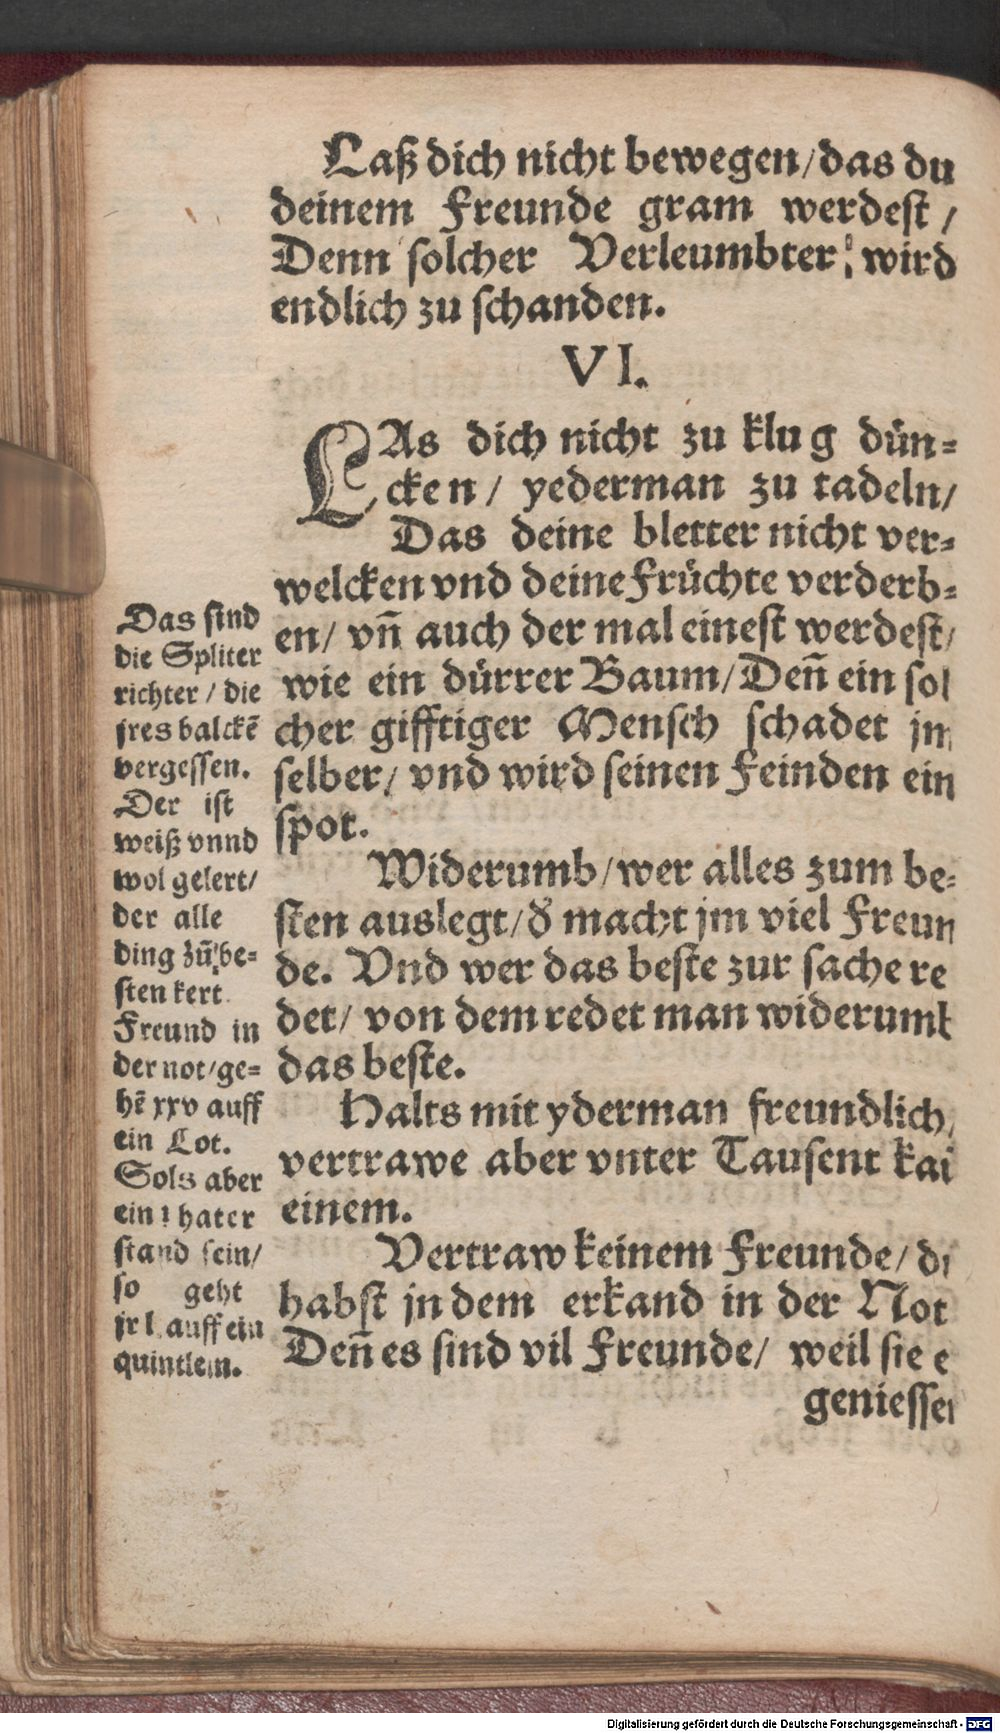 Laß dich nicht bewegen/das du
deinem Freunde gram werdest/
Denn solcher Verleumbter wird
endlich zu schanden.
VI.
LAs dich nicht zu klug dün-
cken/ yederman zu tadeln/
Das deine bletter nicht ver-
welcken vnd deine Früchte verderb-
en/ vn̄ auch der mal einest werdest/
wie ein dürrer Baum/Den̄ ein sol
cher gifftiger Mensch schadet jm
selber/ vnd wird seinen Feinden ein
spot.
Widerumb/wer alles zum be-
sten auslegt/d̓ macht jm viel Freun
de. Vnd wer das beste zur sache re
det/ von dem redet man widerumb
das beste.
Halts mit yderman freundlich,
vertrawe aber vnter Tausent kai
einem.
Vertraw keinem Freunde/
habst jn dem erkand in der Not
Den̄ es sind vil Freunde/ weil sie
geniessen
Das sind
die Spliter
richter/die
jres balckē
vergessen.
Der ist
weiß vnnd
wol gelert/
der alle
ding zū be-
sten kert
Freund in
der not/ge-
hē xxv auff
ein Lot.
Sols aber
ein hater
stand sein/
so geht
jr auff ein
quintlein.
Digitalisierung gefördert durch die Deutsche Forschungsgemeinschaft - DFG